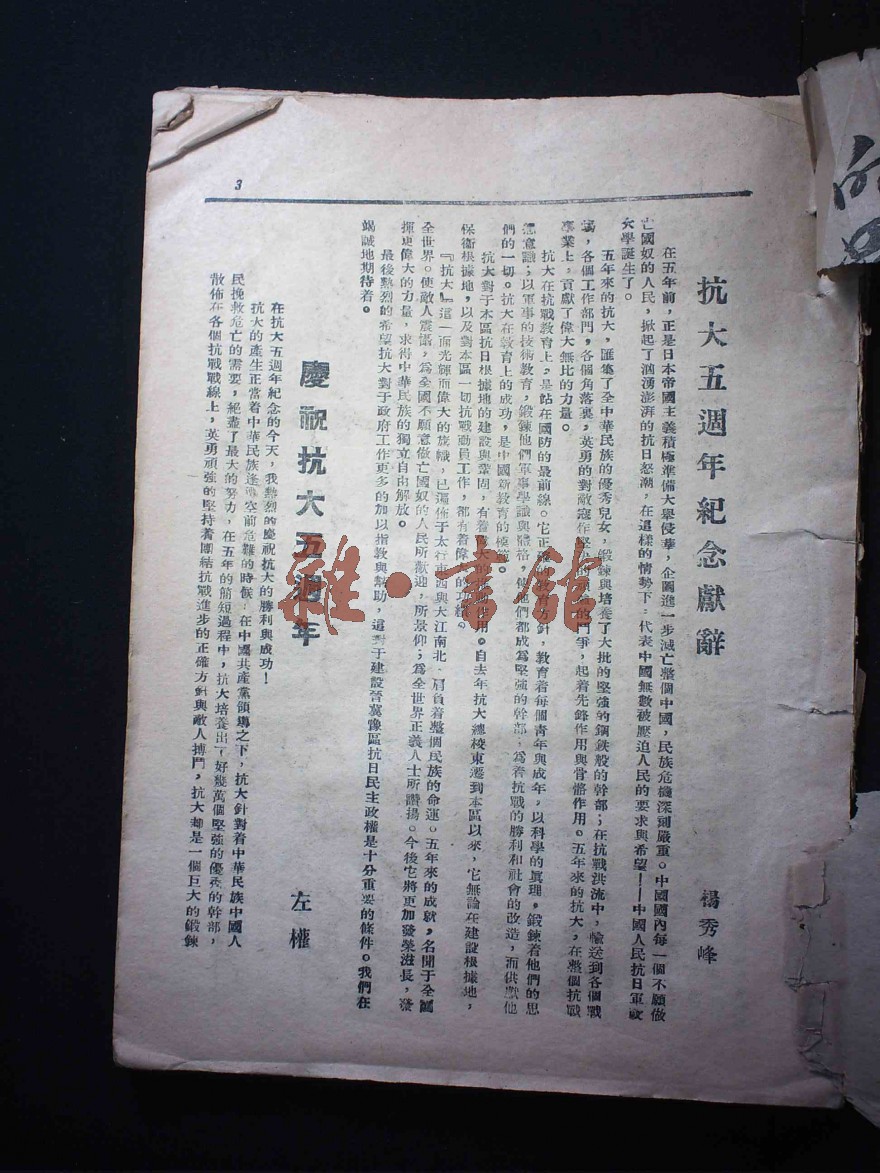 3
抗大五週年紀念獻辭
楊秀峰
在五年前，正是日本帝國主義積極準備大舉侵華，企圖進一步滅亡整個中國，民族危機深刻嚴重。中國國內每一個不願做
亡國奴的人民，掀起了洶湧澎湃的抗日怒潮，在這樣的情勢下，代表中國無數被壓迫人民的要求與希望——中國人民抗日軍政
大學誕生了。
五年來的抗大，匯集了全中華民族的優秀兒女，鍛鍊與培養了大批的堅強的鋼鉄般的幹部；在抗戰洪流中，輸送到各個戰
場，各個工作部門，各個角落裏，英勇的對敵寇作的鬥爭，起着先鋒作用與骨骼作用。五年來的抗大，在整個抗戰
事業上，貢獻了偉大無比的力量。
抗大在抗戰教育上，是站在國防的最前線。它正確的教育方針，教育着每個青年與成年，以科學的真理，鍛鍊着他們的思
想意識；以軍事的技術教育，鍛鍊他們軍事學識與體格，使他們都成爲堅強的幹部，爲着抗戰的勝利和社會的改造，而供獻他
們的一切。抗大在教育上的成功，是中國新教育的模範。
抗大對于本區抗日根據地的建設與鞏固，有着大的作用。自去年抗大總校東遷到本區以來，它無論在建設根據地，
保衛根據地，以及對本區一切抗戰動員工作，都有着偉的功績。
『抗大』這一面光輝而偉大的旗幟，已遍佈于太行東西與大江南北，肩負着整個民族的命運。五年來的成就，名聞于全國
全世界。使敵人震懾，爲全國不願意做亡國奴的人民所歡迎，所景仰；爲全世界正義人士所讚揚。今後它將更加發榮滋長，發
揮更偉大的力量，求得中華民族的獨立自由解放。
最後熱烈的希望抗大對于政府工作更多的加以指教與幫助，這對于建設晉冀豫區抗日民主政權是十分重要的條件。我們在
竭誠地期待着。
慶祝抗大五週年
左權
在抗大五週年紀念的今天，我熱烈的慶祝抗大的勝利與成功！
抗大的產生正當着中華民族逢空前危難的時候，在中國共產黨領導之下，抗大針對着中華民族中國人
民挽救危亡的需要，絕盡了最大的努力，在五年的簡短過程中，抗大培養出了好幾萬個堅強的優秀的幹部，
散佈在各個抗戰戰線上，英勇頑強的堅持着團結抗戰進步的正確方針與敵人搏鬥，抗大却是一個巨大的鍛鍊
雜·書館